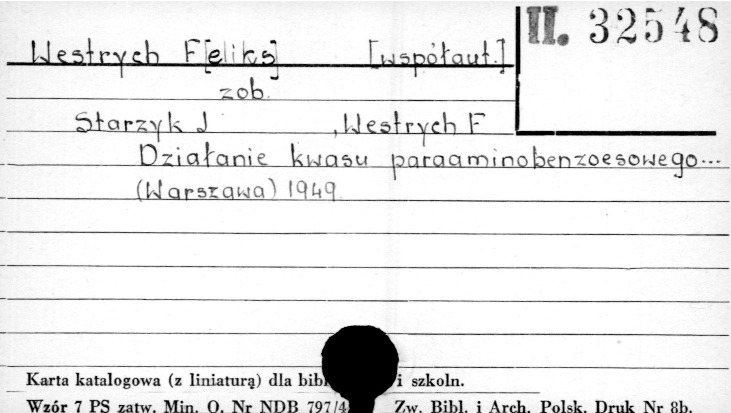 II. 32548
Westrych F[eliks] [współaut.]
zob.
Starzyk J , Westrych F
Działanie kwasu paraaminobenzoesowego...
(Warszawa) 1949.
Karta katalogowa (z liniaturą) dla i szkoln.
Wzór 7 PS zatw. Min. O. Nr NDB Zw. Bibl. i Arch. Polsk. Druk Nr 8b.